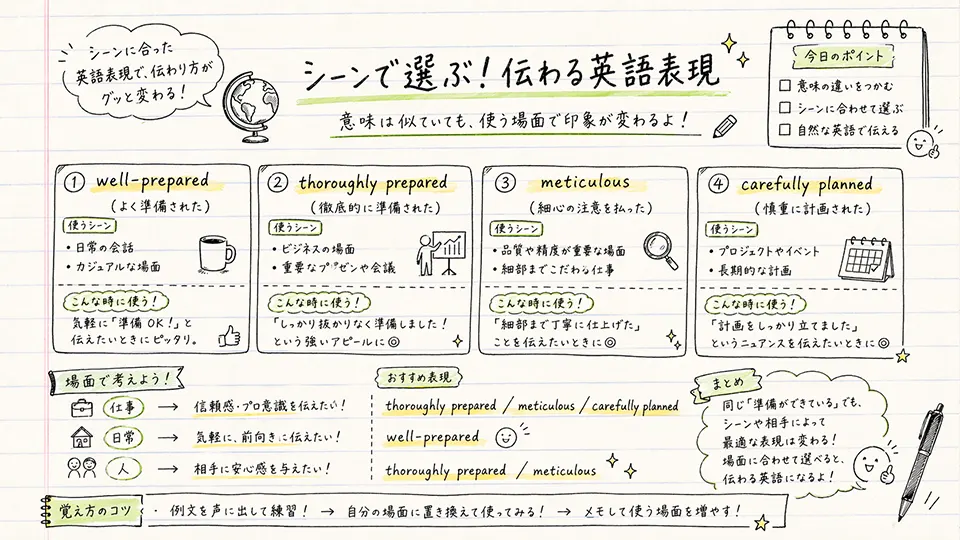 シーンに合った
英語表現で、伝わり方が
グッと変わる！
シーンで選ぶ！伝わる英語表現
意味は似ていても、使う場面で印象が変わるよ！
今日のポイント
□ 意味の違いをつかむ
□ シーンに合わせて選ぶ
□ 自然な英語で伝える
① well-prepared
（よく準備された）
使うシーン
・日常の会話
・カジュアルな場面
こんな時に使う！
気軽に「準備OK！」と
伝えたいときにピッタリ。
② thoroughly prepared
（徹底的に準備された）
使うシーン
・ビジネスの場面
・重要なプレゼンや会議
こんな時に使う！
「しっかり抜かりなく準備しました！
という強いアピールに◎
③ meticulous
（細心の注意を払った）
使うシーン
・品質や精度が重要な場面
・細部までこだわる仕事
こんな時に使う！
「細部まで丁寧に仕上げた」
ことを伝えたいときに◎
④ carefully planned
（慎重に計画された）
使うシーン
・プロジェクトやイベント
・長期的な計画
こんな時に使う！
「計画をしっかり立てました」
というニュアンスを伝えたいときに◎
場面で考えよう！
おすすめ表現
仕事 → 信頼感・プロ意識を伝えたい！ thoroughly prepared / meticulous / carefully planned
日常 → 気軽に、前向きに伝えたい！ well-prepared
人 → 相手に安心感を与えたい！ thoroughly prepared / meticulous
まとめ
同じ「準備ができている」でも、
シーンや相手によって
最適な表現は変わる！
場面に合わせて選べると、
伝わる英語になるよ！
覚え方のコツ ・例文を声に出して練習！ → 自分の場面に置き換えて使ってみる！ → メモして使う場面を増やす！